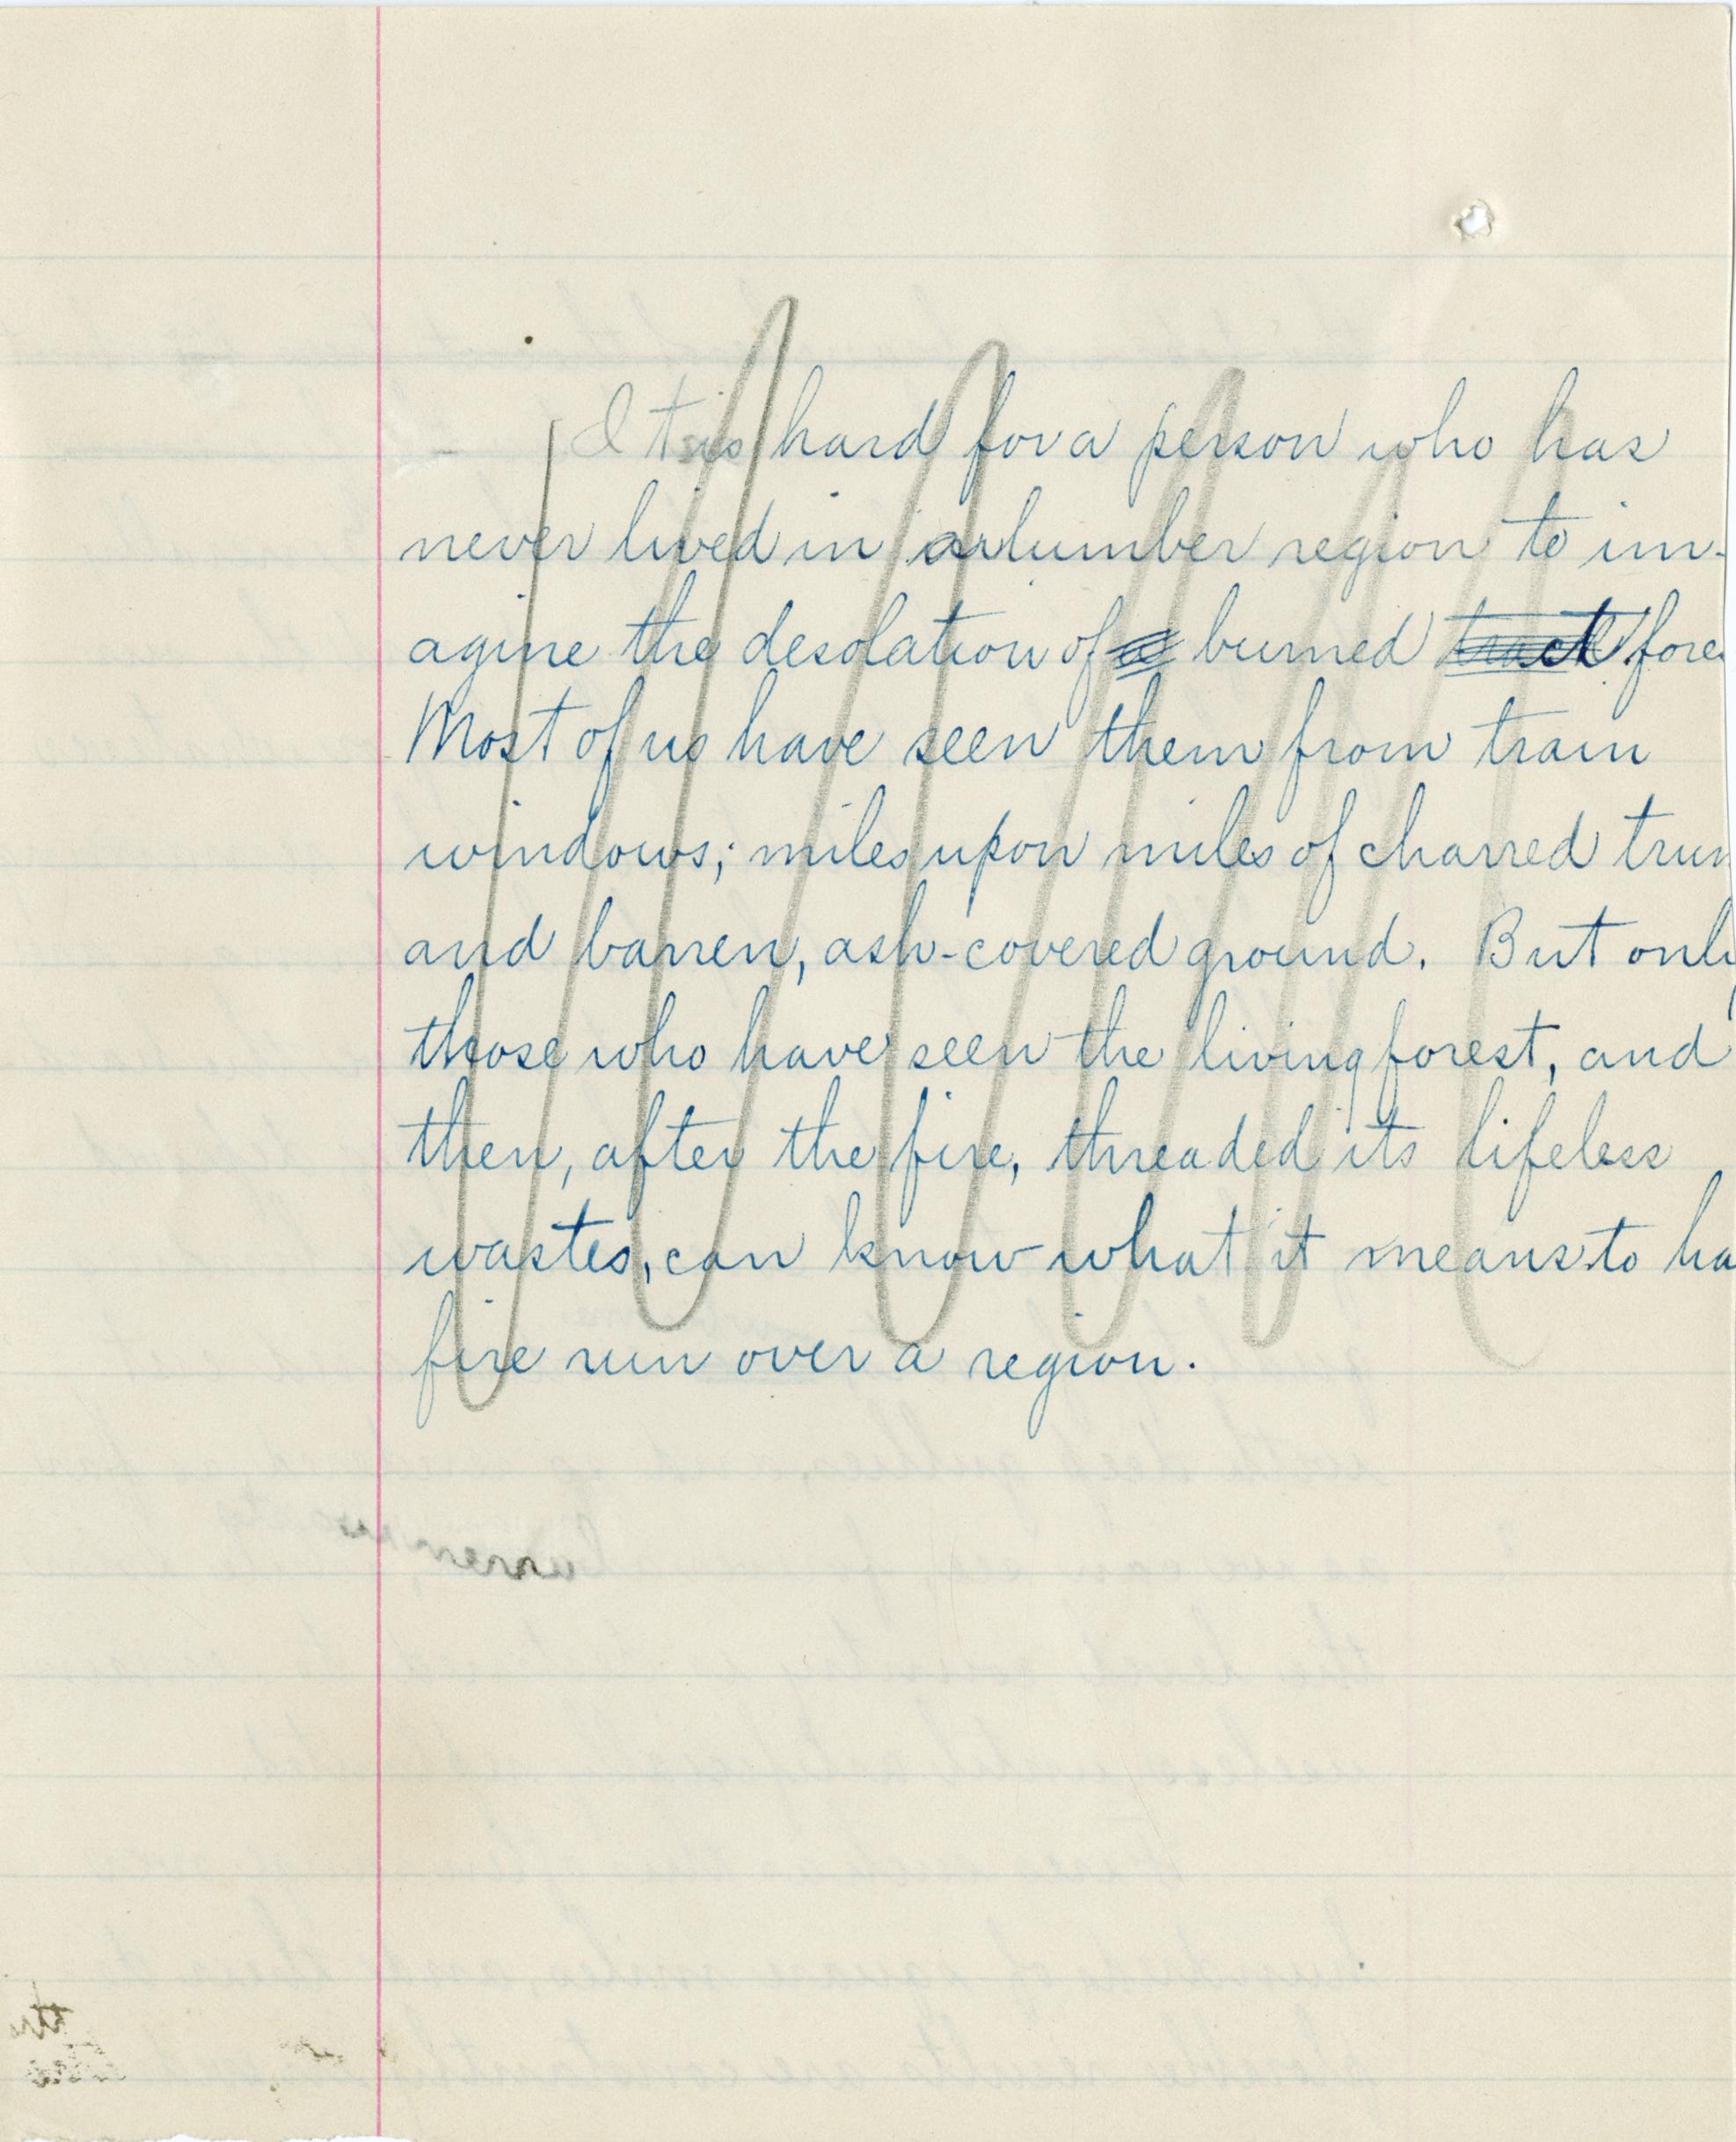 It is hard for a person who has
never lived in a lumber region to im-
agine the desolation of a burned track fore
Most of us have seen them from train
windows; miles upon miles of charred trun
and barren, ash-covered ground. But only
those who have seen the living forest, and
then, after the fire, threaded its lifeless
wastes, can know what it means to ha
fire run over a region.